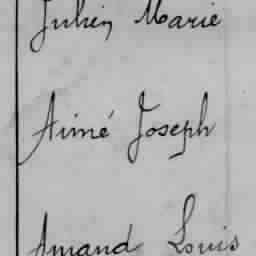 Julien Marie
Aimé Joseph
Amand Louis